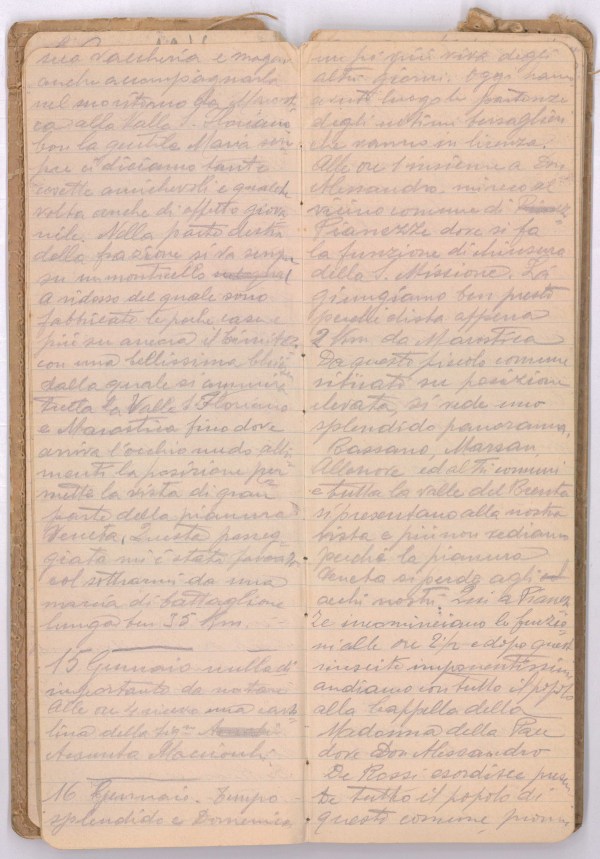 sua Vaccheria e magari
anche accompagnarla
nel montirono da Marosti
ca alla Valle S. Floriano
Con la gentile Maria sem
pre ci diciamo tante
cosette amichevoli e qualche
volta anche di affetto giova
nile. Nella parte destra
della frazione si va sempre
su un monticello
a ridosso del quale sono
fabbricate le poche case e
più su ancora il Cimitero
con una bellissima Chiesa
dalla quale si ammira
tutta la Valle S. Floriano
e Marostica fino dove
arriva l'occhio nudo alti
menti la posizione per
mette la vista di gran
parte della pianura
Veneta. Questa passeg
giata mi è stata
col sottrarmi da una
marcia di battaglione
lunga ben 35 Km.
15 Gennaio nulla di
importante da notare
Alle ore 4 ricevo una carto
lina della
Assunta Macciocchi
16 Gennaio. Tempo
splendido e Domenica
un pò più viva degli
altri giorni. Oggi hanno
avuto luogo le partenze
degli ultimi bersaglieri
che vanno in licenza.
Alle ore 1 insieme a Don
Alessandro mi reco al
vicino comune di
Pianezze dove si fa
la funzione di chiusura
della S. Missione. Là
giungiamo ben presto
perchè dista appena
2 Km da Marostica
Da questo piccolo comune
situato su posizione
elevata, si vede uno
splendido panorama,
Bassano, Marsan,
ed altri comuni
e tutta la valle del Brenta
si presentano alla nostra
vista e più non vediamo
perchè la pianura
Veneta si perde agli
occhi nostri. Qui a Pianez
ze incominciano le funzio
ni alle ore 2 1/2 e dopo queste
riuscite imponentissime
andiamo con tutto il popolo
alla Cappella della
Madonna della Pace
dove Don Alessandro
De Rossi esordisce presen
te tutto il popolo di
questo comune,